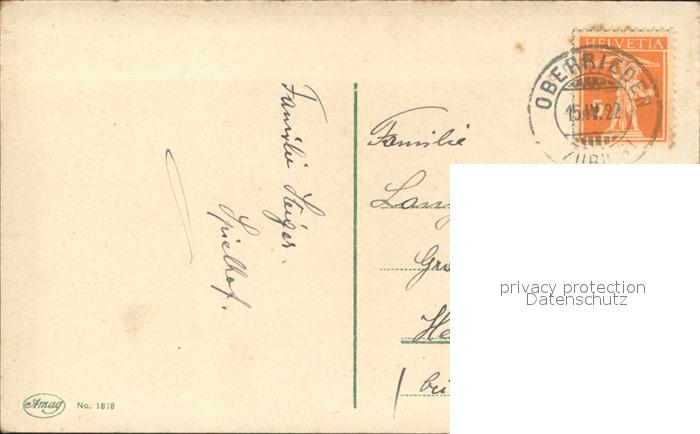 HELVETIA
OBERRIEDEN
15.IV.22
5
ZÜRICH
Familie Steiger.
Spielhof.
Familie
Lang
Gr
He
bei
privacy protection
Datenschutz
Amag
No. 1818